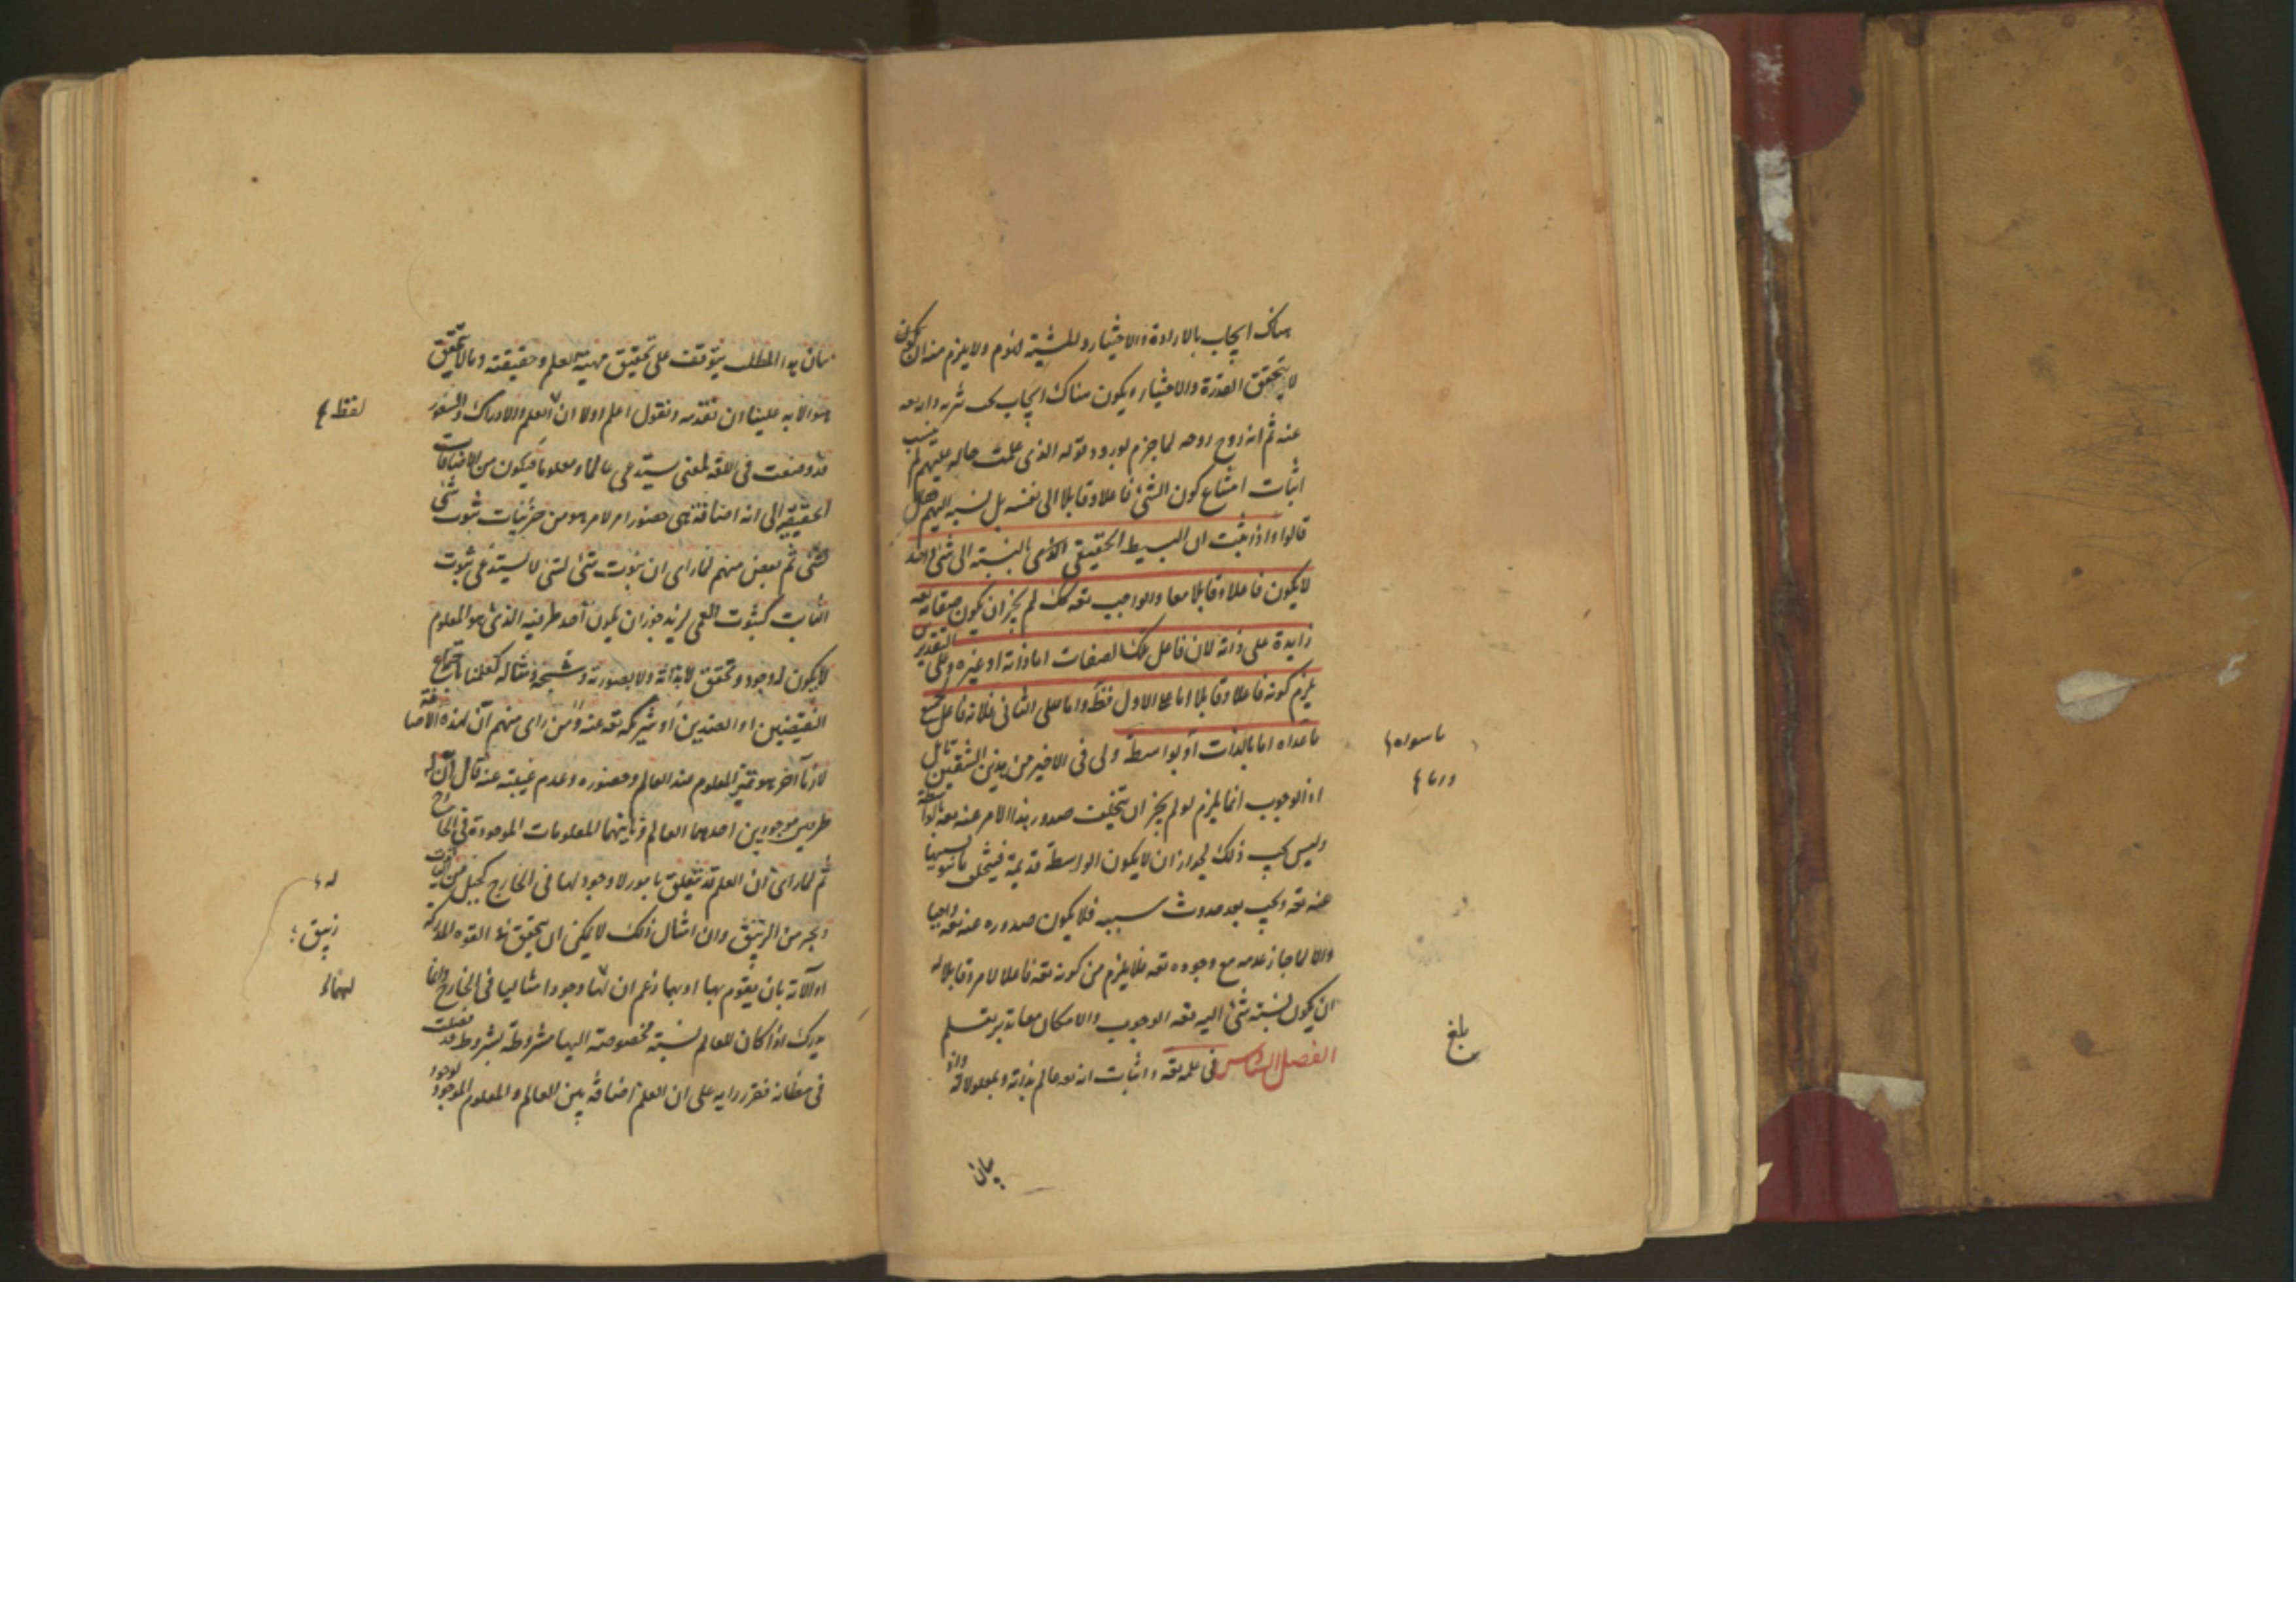 هناك ايجاب بالارادة والاختيار وللمشية لزوم ولا يلزم منه ان يكون
لا يتحقق القدرة والاختيار ويكون هناك ايجاب
عنه ثم انه روح روحه لما جزم بورود قوله الذى علمت حاله عليهم لم ينسب
اثبات امتناع كون الشئ فاعلا وقابلا الى نفسه بل نسبه اليهم
قالوا واذا ثبت ان البسيط الحقيقى الذى بالنسبة الى شئ واحد
لا يكون فاعلا وقابلا معا والواجب تعه كك لم يجز ان يكون صفاته تعه
زايدة على ذاته لان فاعل تلك الصفات اما ذاته او غيره وعلى التقديرين
يلزم كونه فاعلا وقابلا اما على الاول فظ واما على الثانى فلانه فاعل لجميع
ما عداه اما بالذات او بواسطة ولى فى الاخير من هذين الشقين تامل
اذ الوجوب انما يلزم لو لم يجز ان يتخلف صدور هذا الامر عنه تعه بواسطة
وليس يجب ذلك لجواز ان لا يكون الواسطة قديمة فيتخلف
عنه تعه ويجب بعد حدوث سببه فلا يكون صدوره عنه تعه واجبا
والا لما جاز عدمه مع وجوده تعه فلا يلزم من كونه تعه فاعلا لامر وقابلا له
ان يكون نسبته شئ اليه تعه الوجوب والامكان معا تدبر تعلم
الفصل السادس فى علمه تعه واثبات انه تعه عالم بذاته وبمعلولاته واذ
بيان
ما سواه
بلغ
بيان هذا المطلب يتوقف على تحقيق مهية العلم وحقيقته وما لا تحقيق
هو الا به علينا ان نقدمه ونقول اعلم اولا ان العلم والادراك والشعور
قد وضعت فى اللغة لمعنى يستدعى عالما ومعلوما فيكون من الاضافات
الحقيقية الى انه اضافة هى حضور امر لامر هو من جزئيات ثبوت شئ
لشئ ثم بعض منهم لما راى ان ثبوت شئ لشئ لا يستدعى ثبوت
الثابت كثبوت العمى لزيد جوز ان يكون احد طرفيه الذى هو المعلوم
لا يكون له وجود وتحقق لا بذاته ولا بصورته وشبحه ومثاله كعلمنا باجتماع
النقيضين او الضدين او شريكه تعه عنه ومن راى منهم ان لهذه الاضافة
لازما آخر هو تميز المعلوم عند العالم وحضوره وعدم غيبته عنه قال ان له
طرفين موجودين احدهما العالم وثانيهما المعلومات الموجودة فى الخارج
ثم لما راى ان العلم قد يتعلق بامور لا وجود لها فى الخارج كجبل من الياقوت
وبحر من الزيبق وان امثال ذلك لا يمكن ان يتحقق فى القوه المدركه
او آلاته بان يقوم بها او بهما زعم ان لها وجودا مثاليا فى الخارج وانما
يدرك اذا كان للعالم نسبة مخصوصة اليها مشروطة بشروط قد فصلت
فى مظانه فقرر رايه على ان العلم اضافة بين العالم والمعلوم الموجود بوجود
لفظ
له
زيبق
لهما